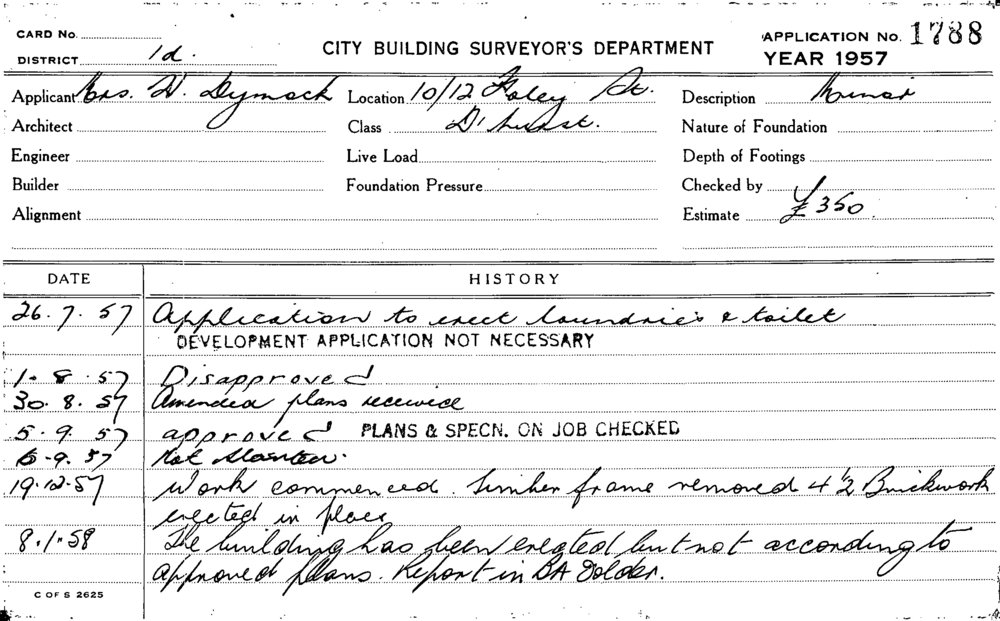 CARD No.
CITY BUILDING SURVEYOR'S DEPARTMENT
APPLICATION No. 1788
DISTRICT 1d.
YEAR 1957
Applicant Mrs. D. Dymock Location 10/12 Foley St. Description Minor
Architect Class D'hurst. Nature of Foundation
Engineer Live Load Depth of Footings
Builder Foundation Pressure Checked by
Alignment Estimate £350.
DATE HISTORY
26.7.57 Application to erect laundries & toilet
DEVELOPMENT APPLICATION NOT NECESSARY
1.8.57 Disapproved
30.8.57 Amended plans received
5.9.57 approved PLANS & SPECN. ON JOB CHECKED
6.9.57 Not Started.
19.12.57 Work commenced. Timber frame removed 4½ Brickwork
erected in place
8.1.58 The building has been erected but not according to
approved plans. Report in BA Folder.
C OF S 2625